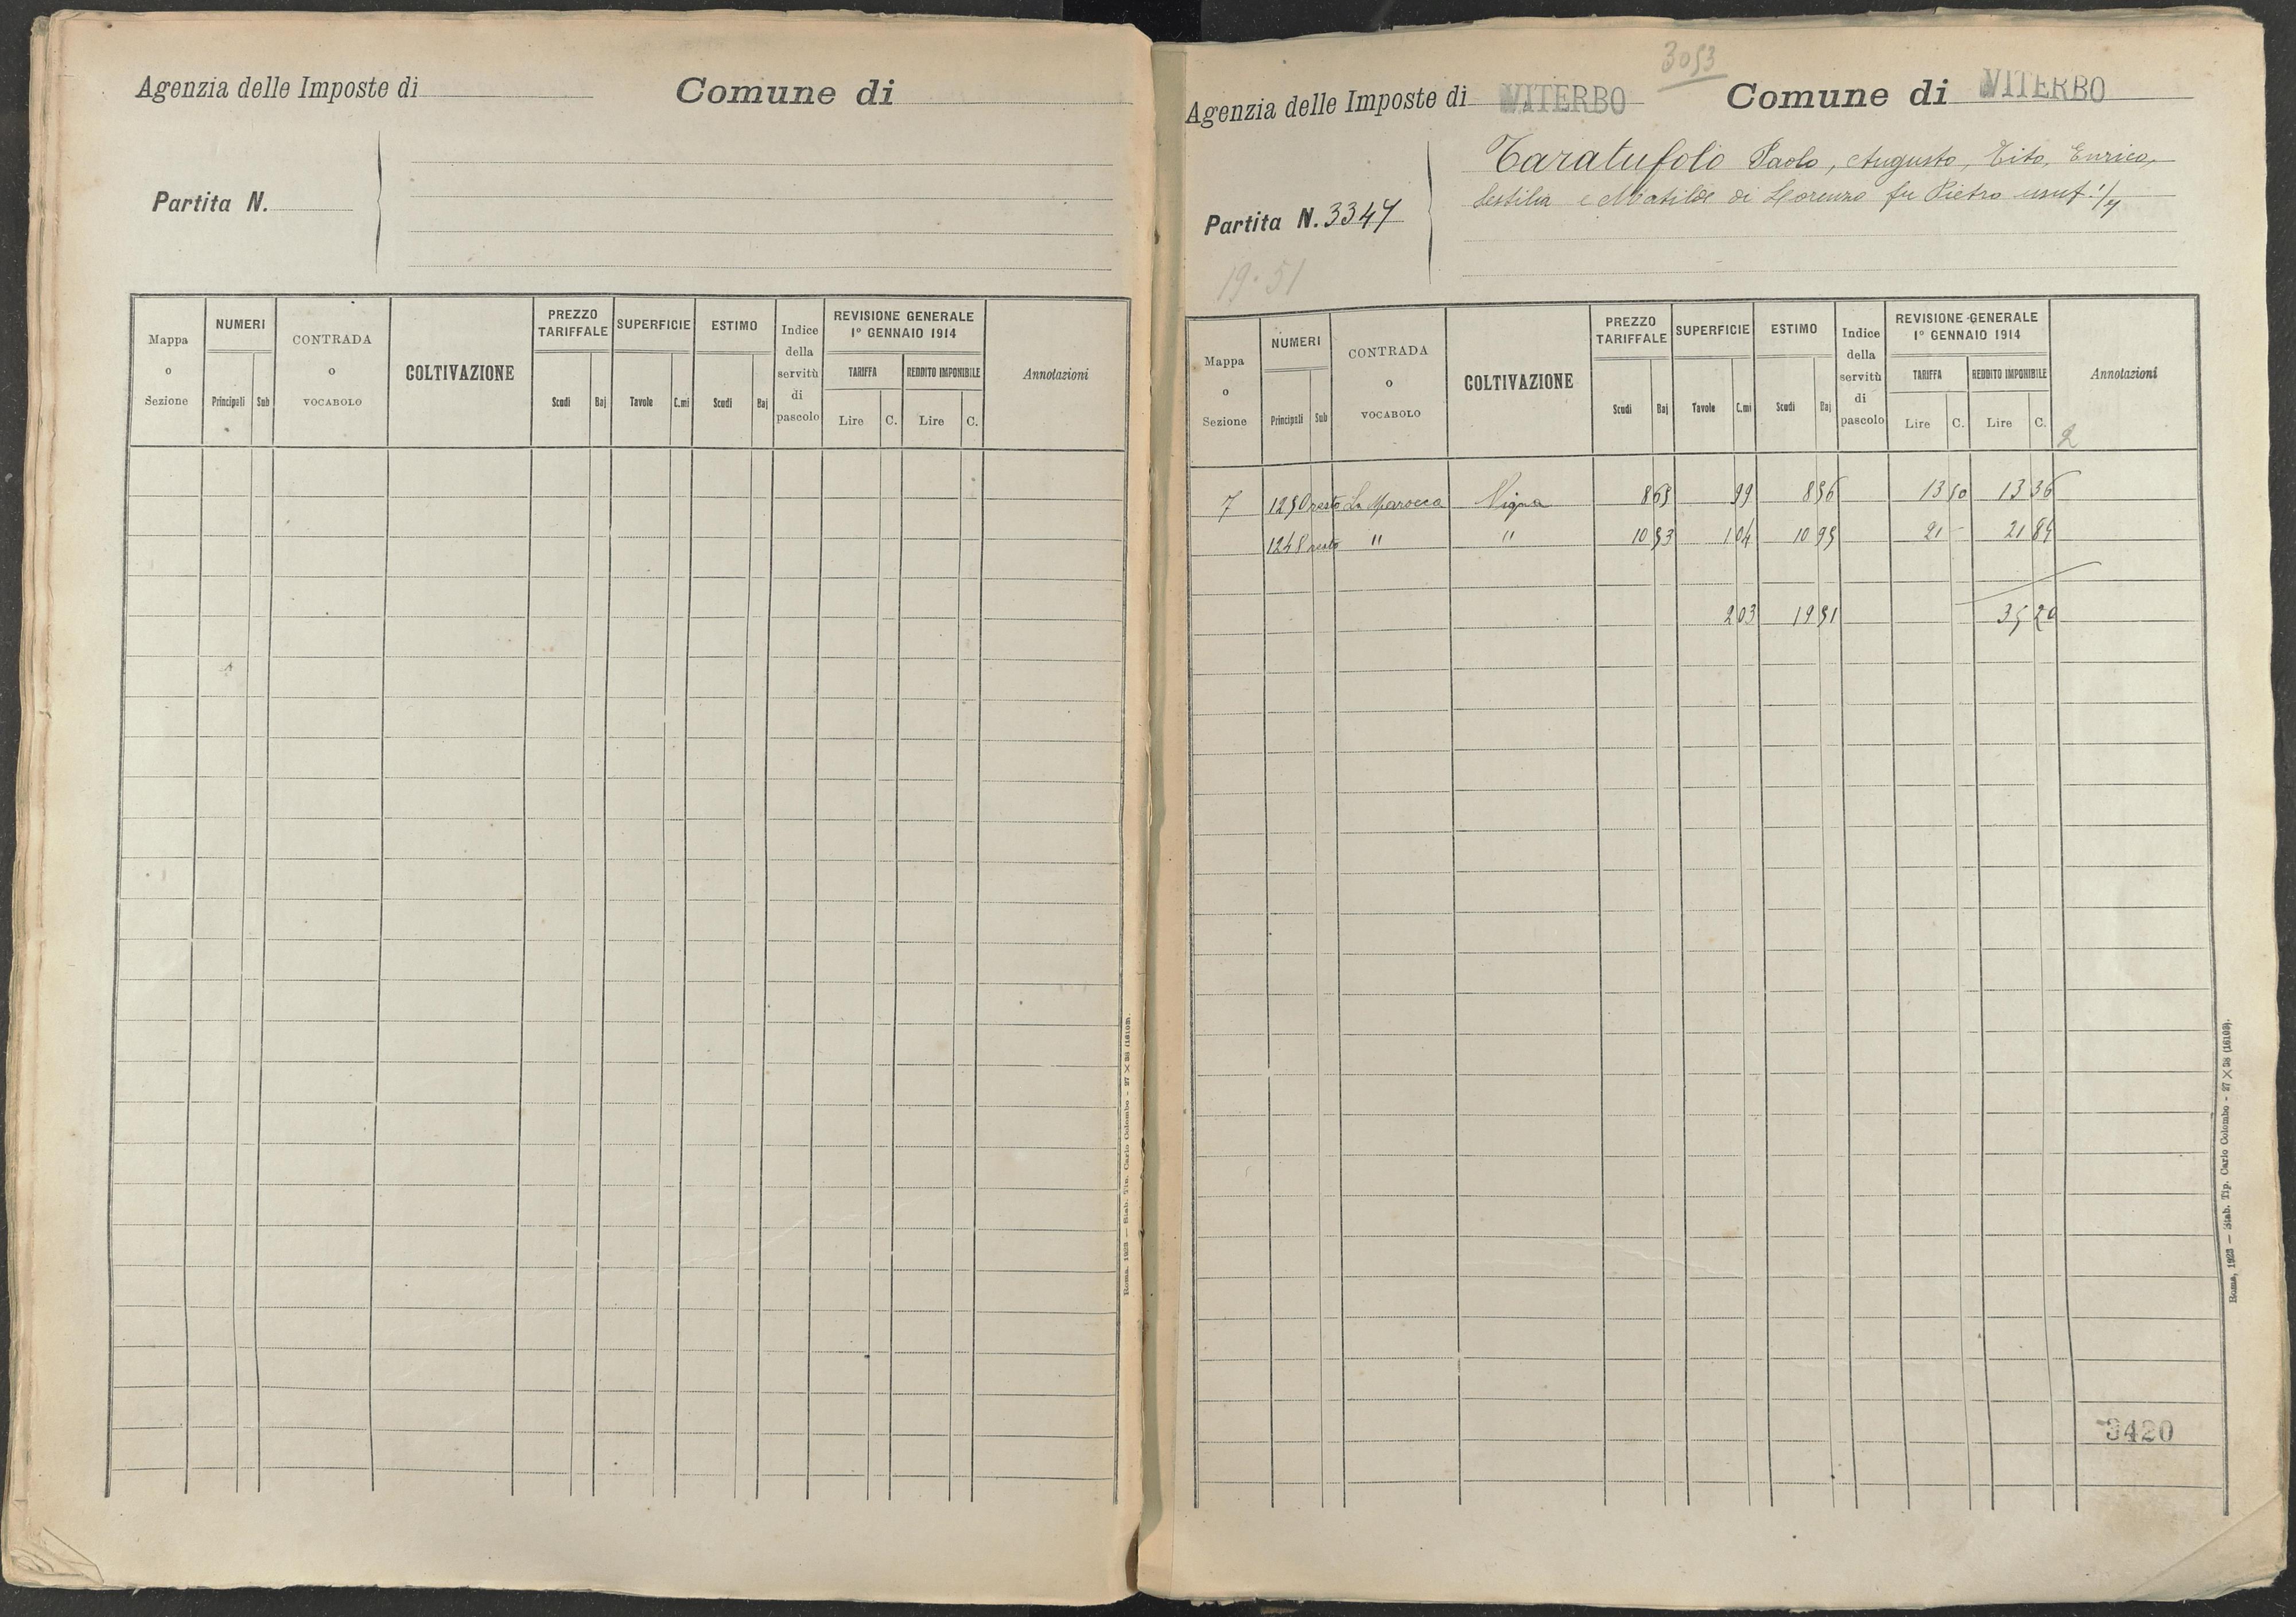 Agenzia delle Imposte di Comune di
Partita N.
Mappa o Sezione NUMERI Principali Sub CONTRADA o VOCABOLO COLTIVAZIONE PREZZO TARIFFALE Scudi Baj SUPERFICIE Tavole C.mi ESTIMO Scudi Baj Indice della servitù di pascolo REVISIONE GENERALE 1º GENNAIO 1914 TARIFFA Lire C. REDDITO IMPONIBILE Lire C. Annotazioni
Roma, 1923 — Stab. Tip. Carlo Colombo - 27 X 38 (16103).
3053
Agenzia delle Imposte di VITERBO Comune di VITERBO
Taratufolo Paolo, Augusto, Tito, Enrico,
Sestilia e Matilde di Lorenzo fu Pietro usuf. 1/7
Partita N. 3347
19.51
Mappa o Sezione NUMERI Principali Sub CONTRADA o VOCABOLO COLTIVAZIONE PREZZO TARIFFALE Scudi Baj SUPERFICIE Tavole C.mi ESTIMO Scudi Baj Indice della servitù di pascolo REVISIONE GENERALE 1º GENNAIO 1914 TARIFFA Lire C. REDDITO IMPONIBILE Lire C. Annotazioni
2
7 1250 resto La Marocca Vigna 8 65 99 8 56 13 50 13 36
1248 resto " " 10 53 1 04 10 95 21 - 21 84
2 03 19 51 35 20
3420
Roma, 1923 — Stab. Tip. Carlo Colombo - 27 X 38 (16103).